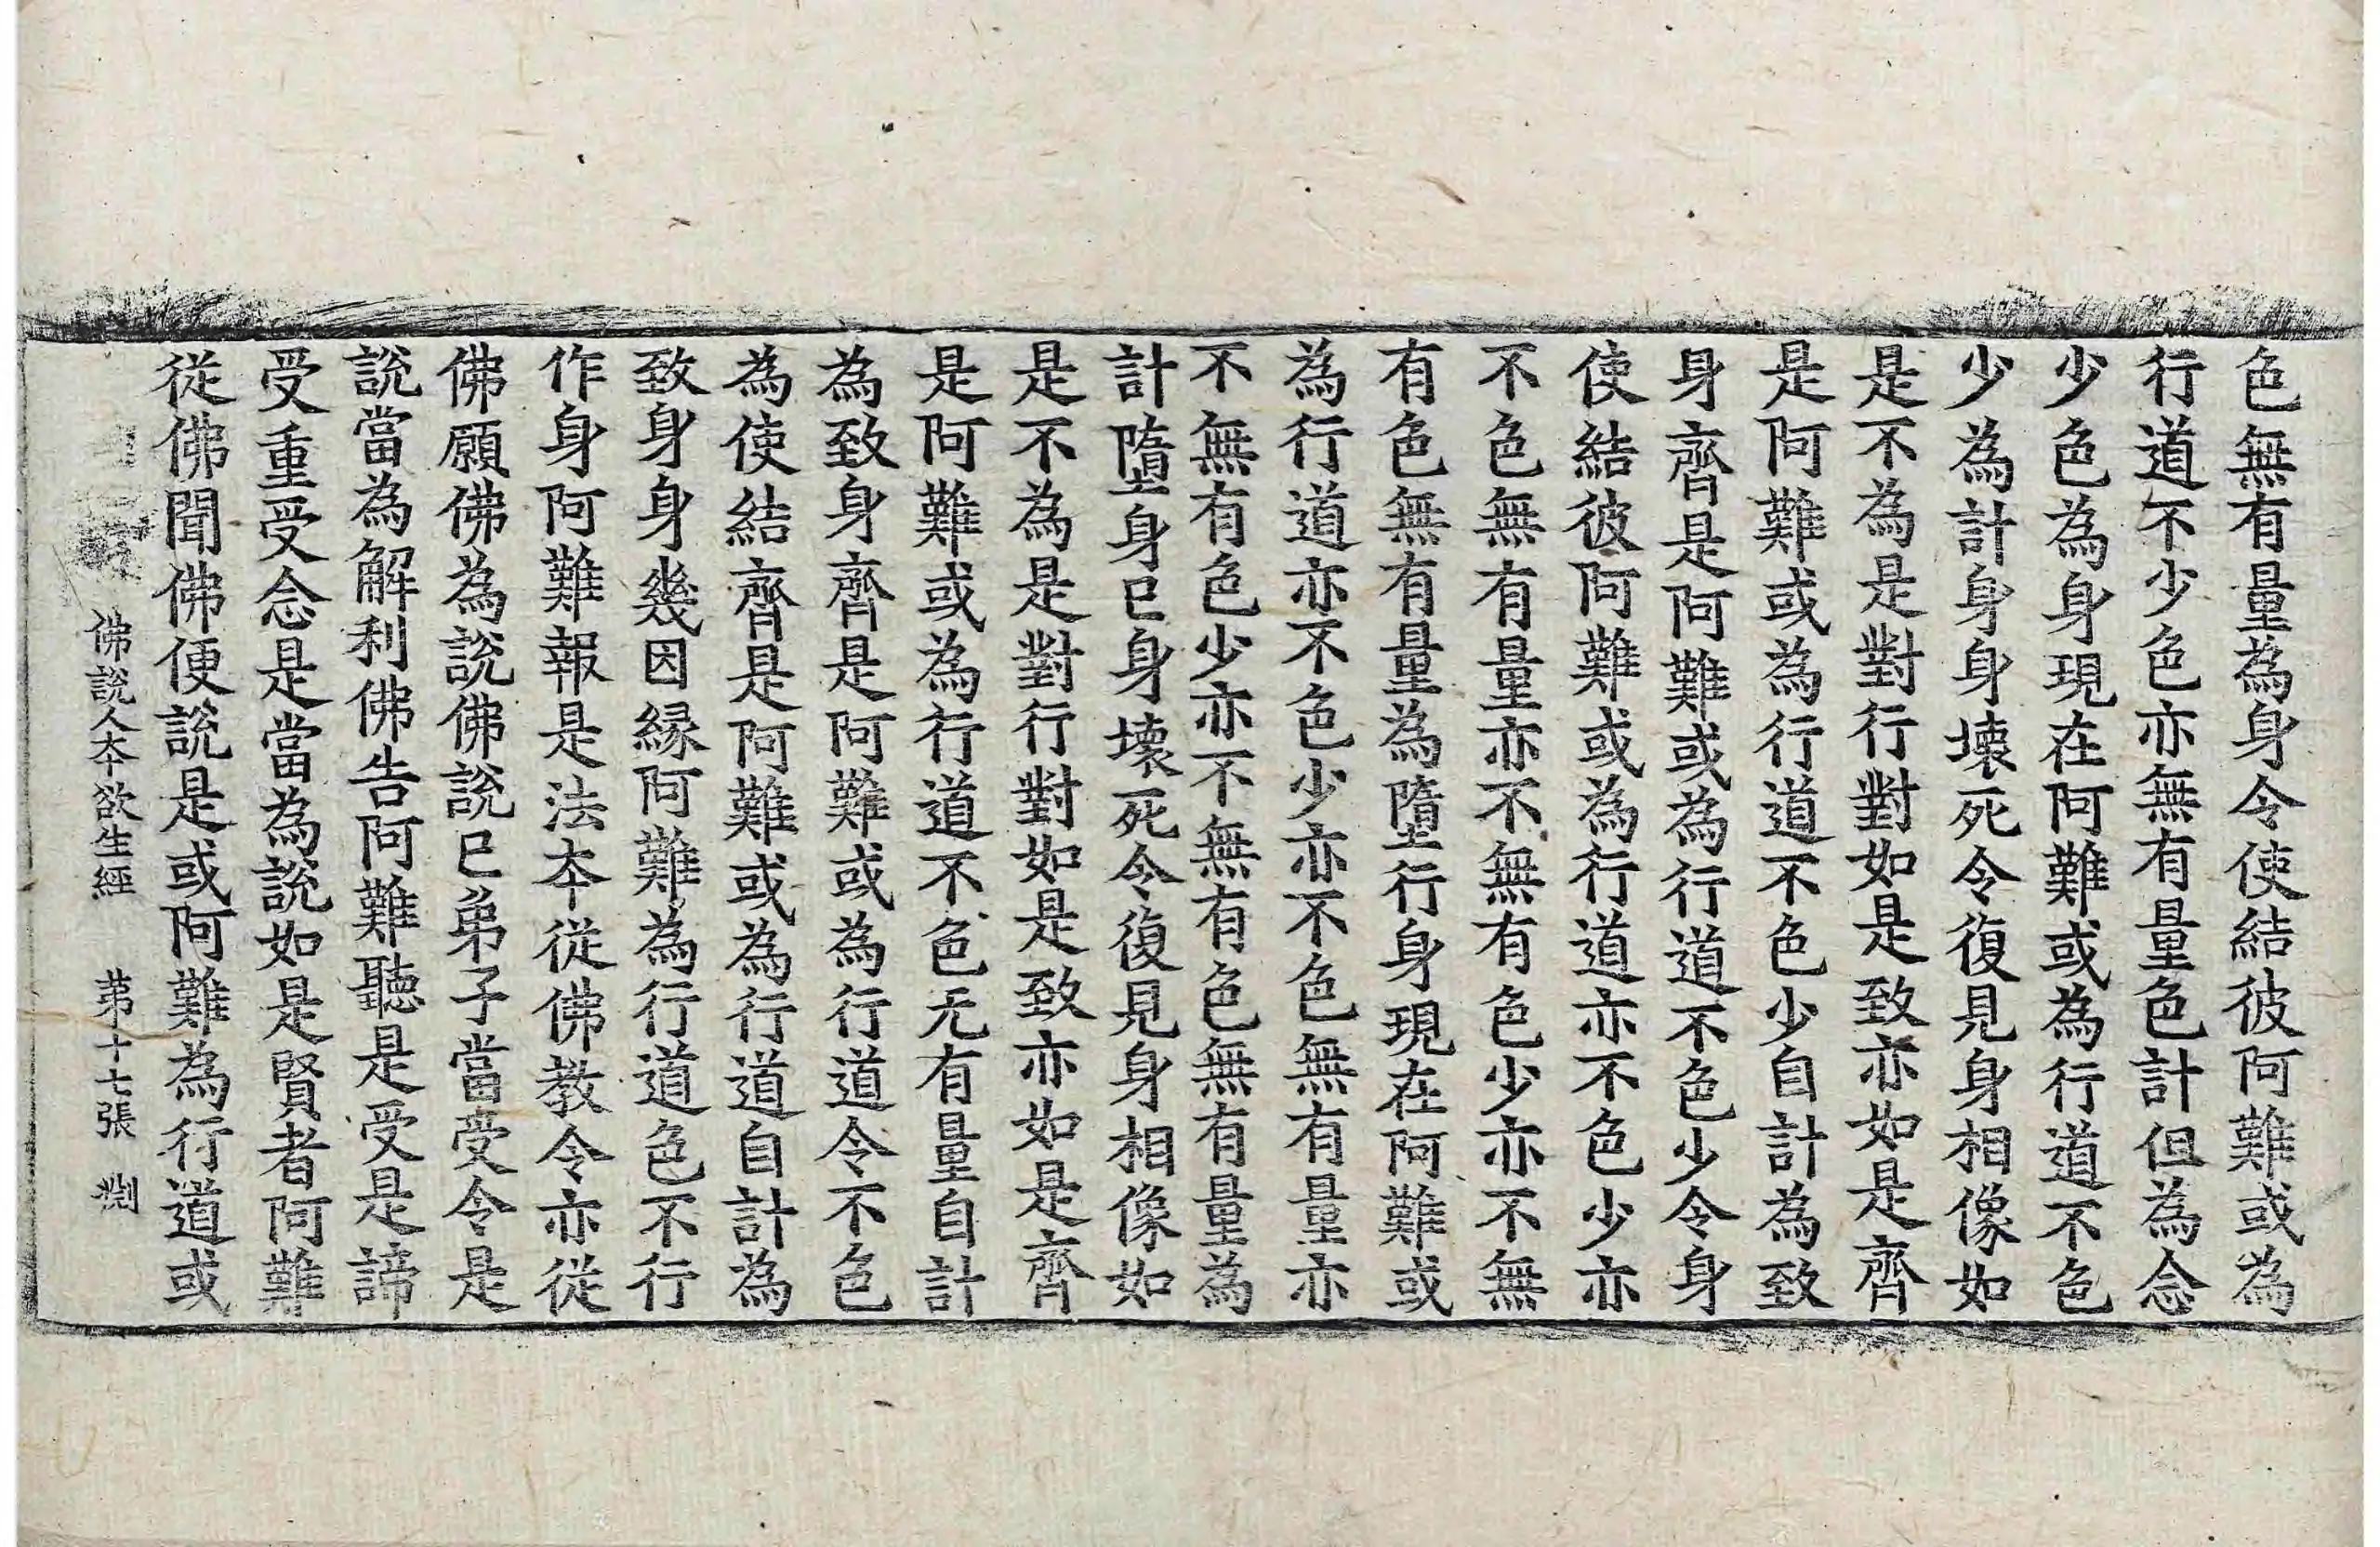 色無有量為身令使結彼阿難或為
行道不少色亦無有量色計但為念
少色為身現在阿難或為行道不色
少為計身身壞死令復見身相像如
是不為是對行對如是致亦如是齊
是阿難或為行道不色少自計為致
身齊是阿難或為行道不色少令身
使結彼阿難或為行道亦不色少亦
不色無有量亦不無有色少亦不無
有色無有量為墮行身現在阿難或
為行道亦不色少亦不色無有量亦
不無有色少亦不無有色無有量為
計墮身已身壞死令復見身相像如
是不為是對行對如是致亦如是齊
是阿難或為行道不色无有量自計
為致身齊是阿難或為行道令不色
為使結齊是阿難或為行道自計為
致身身幾因緣阿難為行道色不行
作身阿難報是法本從佛教令亦從
佛願佛為說佛說已弟子當受令是
說當為解利佛告阿難聽是受是諦
受重受念是當為說如是賢者阿難
從佛聞佛便說是或阿難為行道或
佛說人本欲生經　第十七張